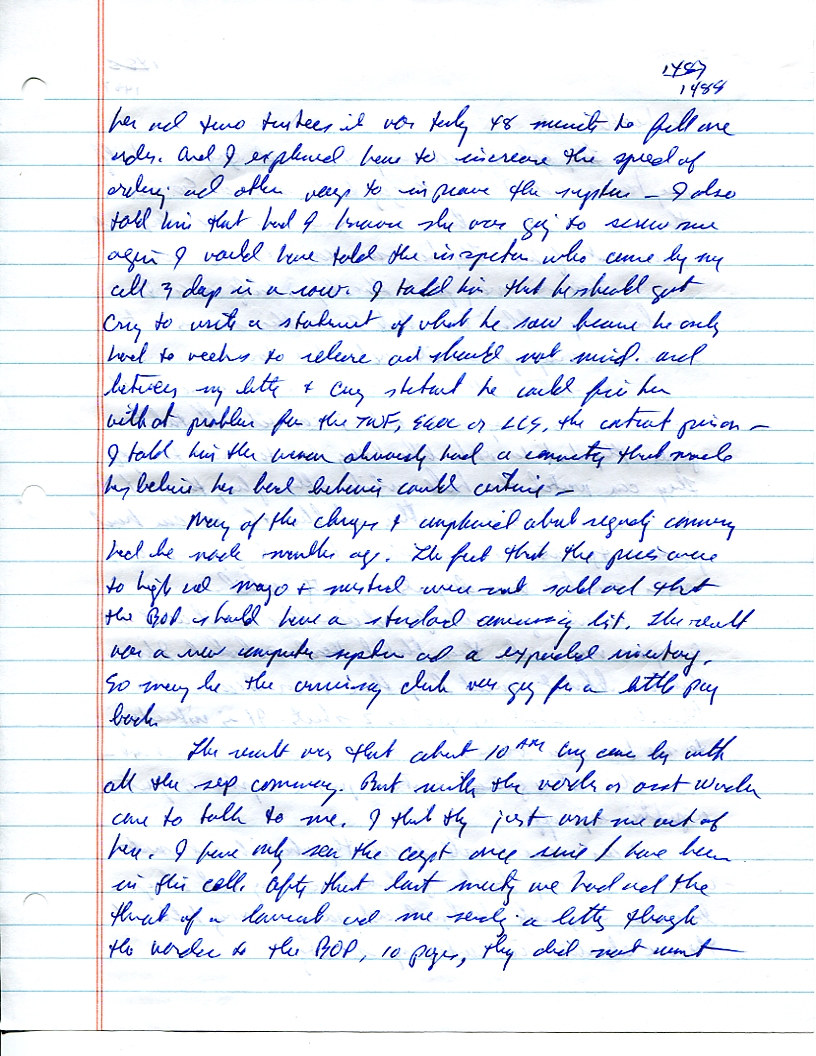 1487
1488
her and two trustees it was taking 48 minutes to fill one
order. And I explained how to increase the speed of
ordering and other ways to improve the system — I also
told him that had I known she was going to screw me
again I would have told the inspector who came by my
cell 3 days in a row. I told him that he should get
to write a statement of what he saw because he only
had two weeks to release and should not mind. and
between my letter + statement he could fire her
without problem for the TWF, or LCS, the contract prison —
I told him the woman obviously had a that made
her believe her bad behavior could continue —
Many of the changes I complained about regarding commissary
had be made months ago. The fact that the prices were
to high and mayo + mustard were not sold and that
the BOP should have a standard commissary list. The result
was a new computer system and a expanded inventory.
So maybe the commissary clerk was going for a little pay
back.
The result was that about 10 AM came by with
all the seg commissary. But neither the warden or asst warden
came to talk to me. I think they just want me out of
here. I have only seen the capt once since I have been
in this cell. After that last meeting we had and the
threat of a lawsuit and me sending a letter through
the warden to the BOP, 10 pages, they did not want